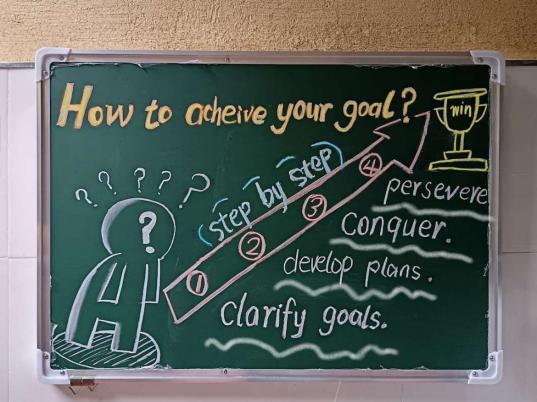 How to acheive your goal?
win
? ? ? ? ?
?
step by step
④
persevere
③
Conquer.
②
develop plans.
①
clarify goals.